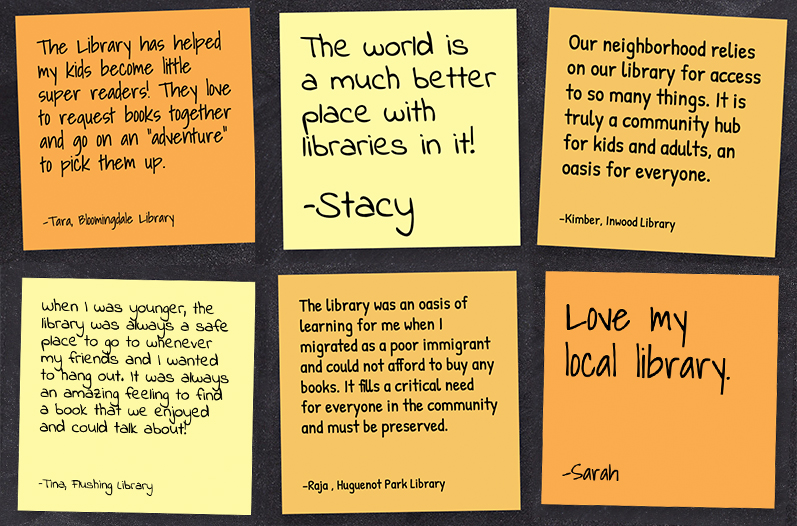 The Library has helped
my kids become little
super readers! They love
to request books together
and go on an "adventure"
to pick them up.
-Tara, Bloomingdale Library
The world is
a much better
place with
libraries in it!
-Stacy
Our neighborhood relies
on our library for access
to so many things. It is
truly a community hub
for kids and adults, an
oasis for everyone.
-Kimber, Inwood Library
When I was younger, the
library was always a safe
place to go to whenever
my friends and I wanted
to hang out. It was always
an amazing feeling to find
a book that we enjoyed
and could talk about!
-Tina, Flushing Library
The library was an oasis of
learning for me when I
migrated as a poor immigrant
and could not afford to buy any
books. It fills a critical need
for everyone in the community
and must be preserved.
-Raja , Huguenot Park Library
Love my
local library.
-Sarah